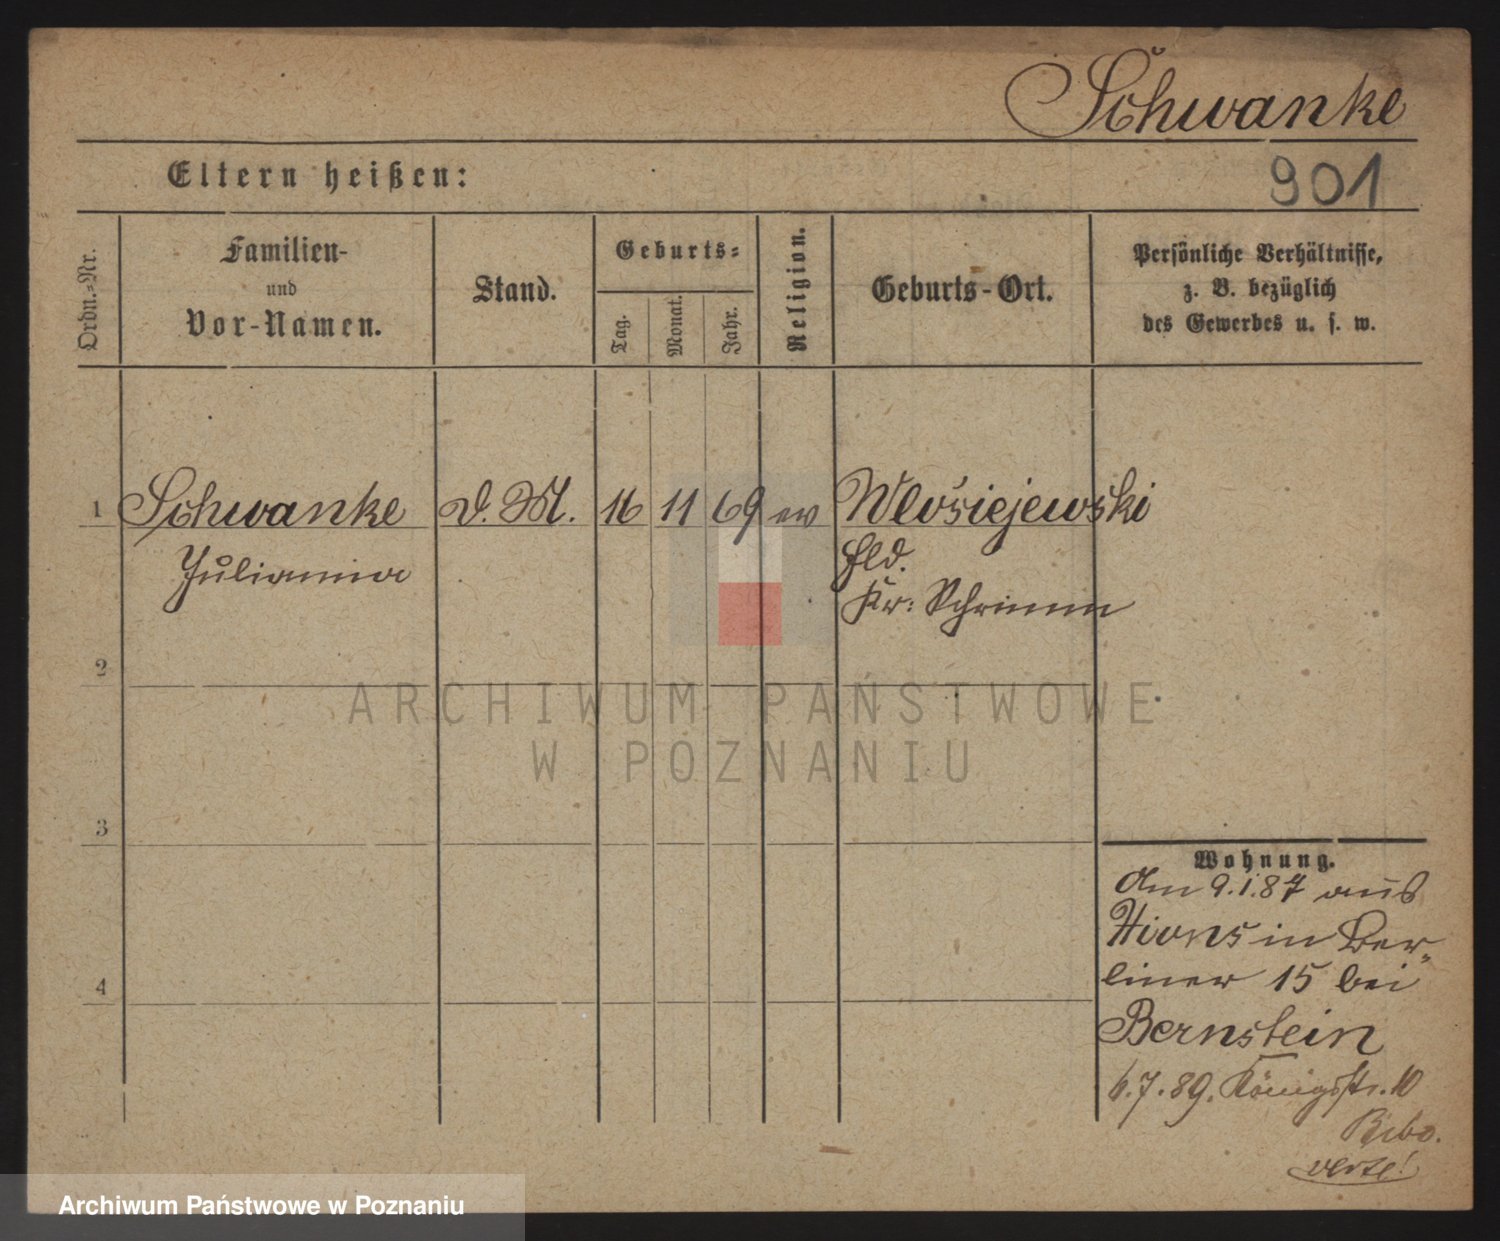 Schwanke
901
Eltern heißen:
Ordn.-Nr.
Familien-
und
Vor-Namen.
Stand.
Geburts-
Tag.
Monat.
Jahr.
Religion.
Geburts-Ort.
Persönliche Verhältnisse,
z. B. bezüglich
des Gewerbes u. s. w.
1 Schwanke D. M. 16 11 69 ev Wlosiejewski
Julianna
Hld.
Kr: Schrimm
2
ARCHIWUM PAŃSTWOWE
W POZNANIU
3
Wohnung.
Am 9.1.87 aus
Xions in Ber-
liner 15 bei
4
Bernstein
6.7.89. Königsstr. 10
verte!
Archiwum Państwowe w Poznaniu